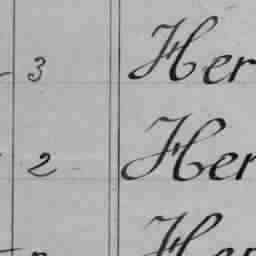 3 Her
2 Her